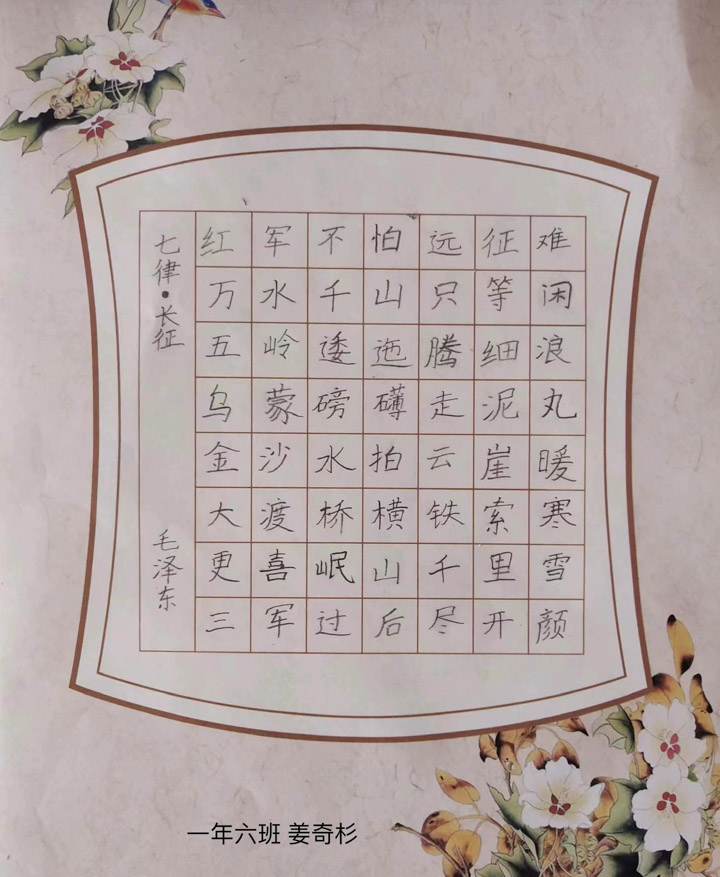 七律·长征
毛泽东
红军不怕远征难
万水千山只等闲
五岭逶迤腾细浪
乌蒙磅礴走泥丸
金沙水拍云崖暖
大渡桥横铁索寒
更喜岷山千里雪
三军过后尽开颜
一年六班 姜奇杉